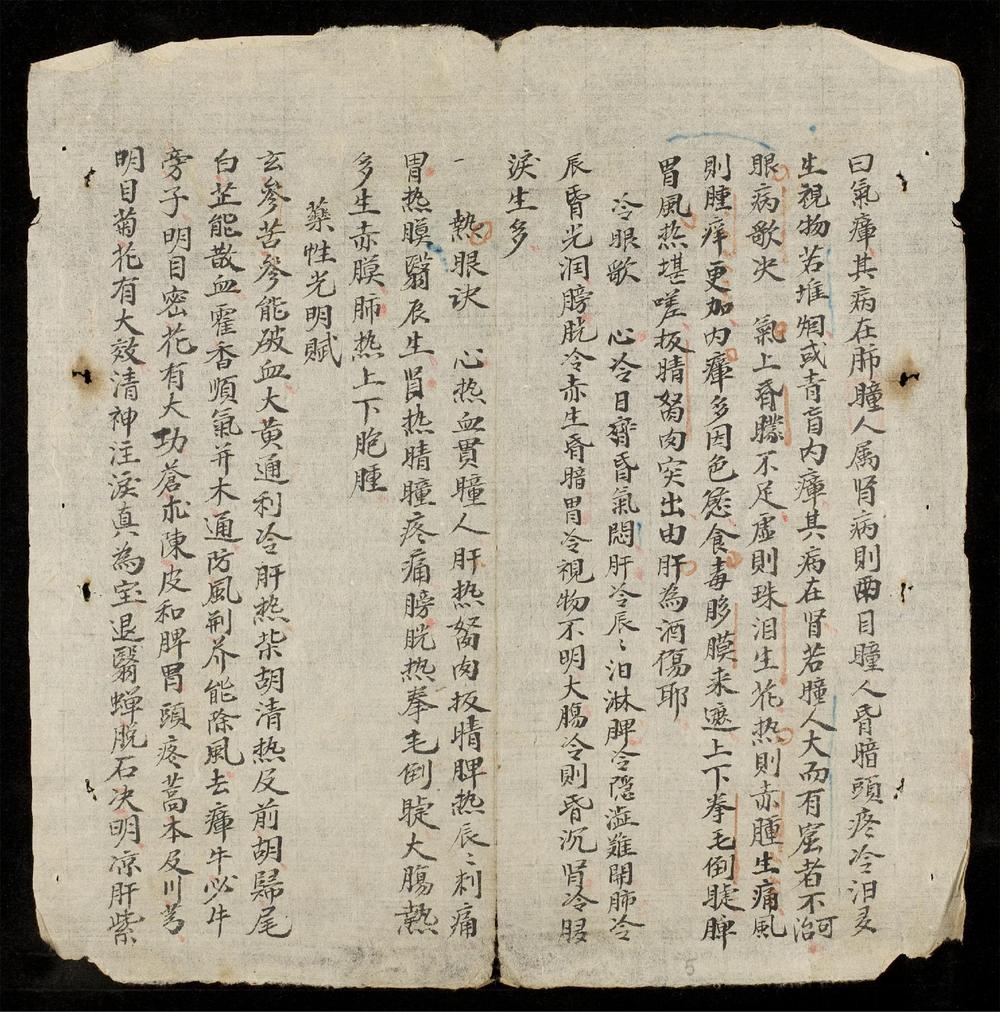 曰氣瘴其病在肺瞳人属肾病則兩目瞳人昏暗頭疼冷泪多
生視物若堆烟或青盲内瘴其病在肾若瞳人大而有窟者不可治
眼病歌决　氣上昏矇不足虛則珠泪生花热則赤腫生痛風
則腫痒更加内瘴多因色慾食毒胗膜来遮上下拳毛倒睫脾
胃風热堪嗟扳睛胬肉突出由肝為酒傷耶
冷眼歌　心冷日齊昏氣悶肝冷辰〻泪淋脾冷隱澁難開肺冷
辰昏光润膀胱冷赤生昏暗胃冷視物不明大腸冷則昏沉肾冷
淚生多
一　熱眼訣　心热血貫瞳人肝热胬肉扳睛脾热辰〻刺痛
胃热膜翳辰生肾热睛瞳疼痛膀胱热拳毛倒睫大腸熱
多生赤膜肺热上下胞腫
藥性光明賦
玄參苦參能破血大黄通利冷肝热柴胡清热反前胡歸尾
白芷能散血霍香順氣并木通防風荆芥能除風去瘴牛必牛
旁子明目密花有大功蒼朮陳皮和脾胃頭疼蒿本及川芎
明目菊花有大效清神注淚真為宝退翳蝉脱石决明凉肝紫